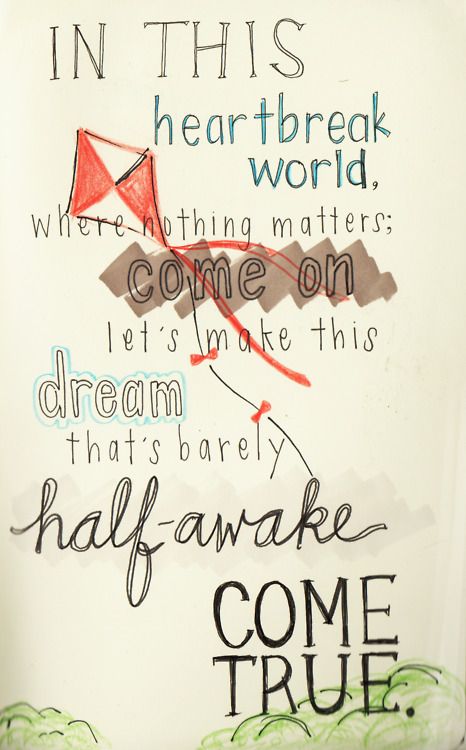 IN THIS
heartbreak
world,
where nothing matters;
come on
let's make this
dream
that's barely
half-awake
COME
TRUE.